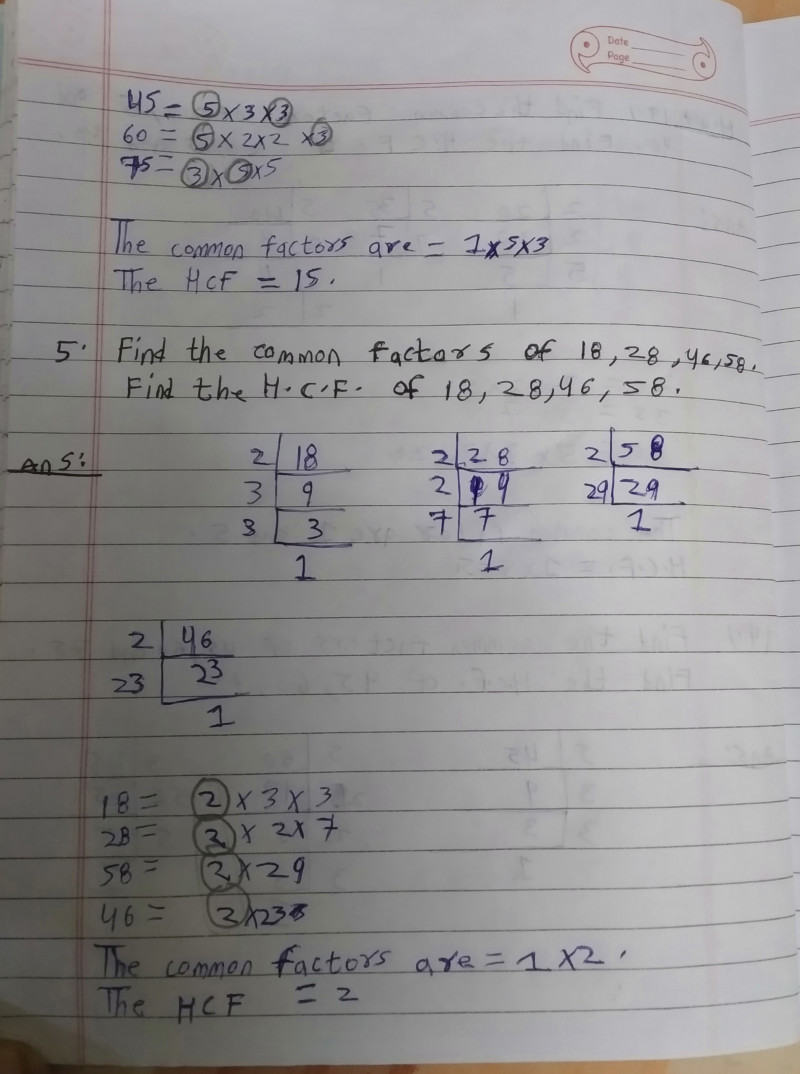 Date
Page
45 = 5 x 3 x 3
60 = 5 x 2 x 2 x 3
75 = 3 x 5 x 5
The common factors are = 1x5x3
The HCF = 15.
5. Find the common factors of 18, 28, 46, 58.
Find the H.C.F. of 18, 28, 46, 58.
Ans:
2 | 18
3 | 9
3 | 3
1
2 | 28
2 | 14
7 | 7
1
2 | 58
29 | 29
1
2 | 46
23 | 23
1
18 = 2 x 3 x 3
28 = 2 x 2 x 7
58 = 2 x 29
46 = 2 x 23
The common factors are = 1 x 2.
The HCF = 2